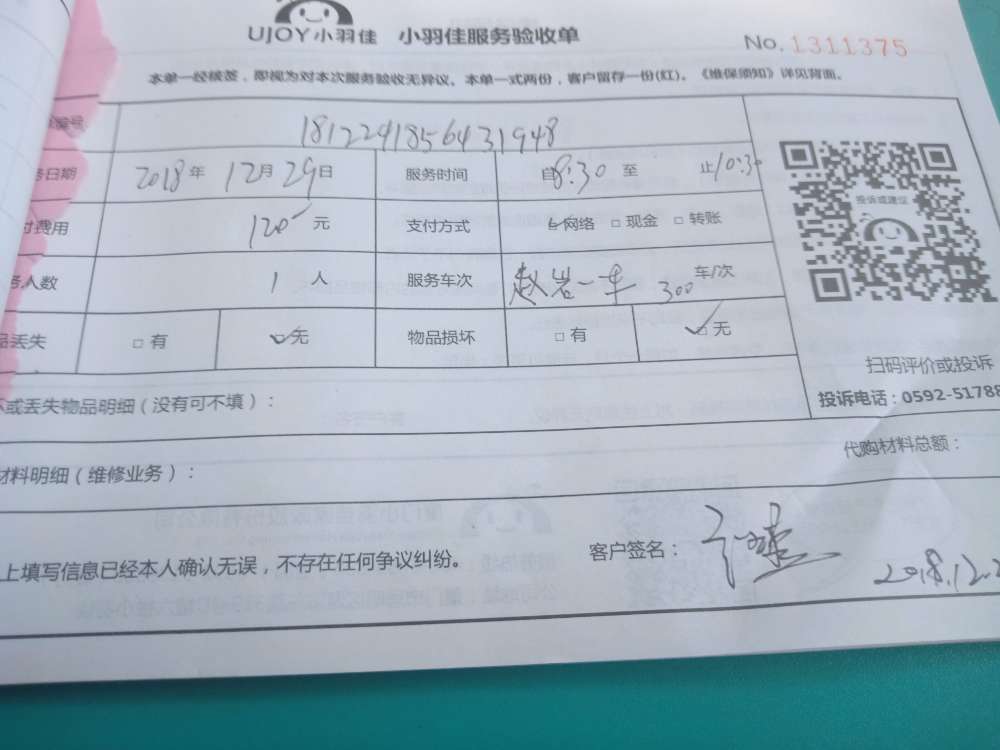 UJOY小羽佳 小羽佳服务验收单
No. 1311375
本单一经核签，即视为对本次服务验收无异议。本单一式两份，客户留存一份(红)。《维保须知》详见背面。
编号 1812241856431948
务日期 2018年 12月 29日 服务时间 自8:30 至 止10:30
付费用 120 元 支付方式 网络 □ 现金 □ 转账
务人数 1 人 服务车次 赵岩一车 300 车/次
品丢失 □ 有 □ 无 物品损坏 □ 有 □ 无
投诉或建议
扫码评价或投诉
投诉电话：0592-51788
坏或丢失物品明细（没有可不填）：
代购材料总额：
材料明细（维修业务）：
上填写信息已经本人确认无误，不存在任何争议纠纷。 客户签名：
2018.12.2